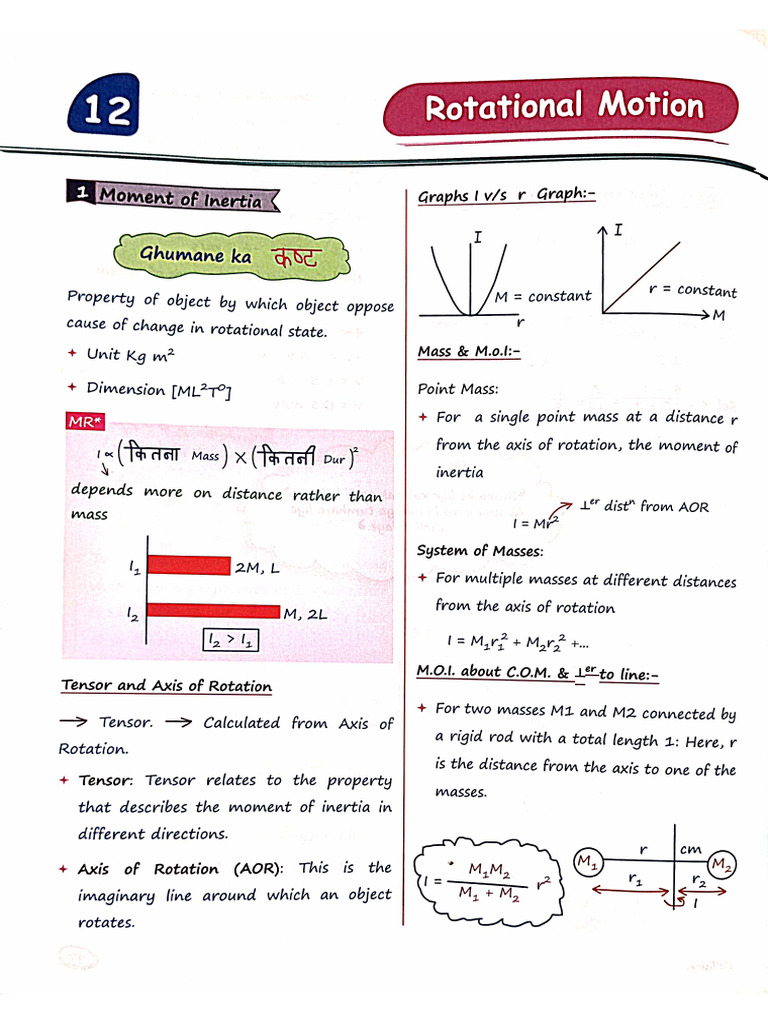 12
Rotational Motion
1 Moment of Inertia
Ghumane ka कष्ट
Property of object by which object oppose
cause of change in rotational state.
+ Unit Kg m²
+ Dimension [ML²T⁰]
MR*
I ∝ (कितना Mass) × (कितनी Dur)²
depends more on distance rather than
mass
I₁ 2M, L
I₂ M, 2L
I₂ > I₁
Tensor and Axis of Rotation
→ Tensor. → Calculated from Axis of
Rotation.
+ Tensor: Tensor relates to the property
that describes the moment of inertia in
different directions.
+ Axis of Rotation (AOR): This is the
imaginary line around which an object
rotates.
Graphs I v/s r Graph:-
I
M = constant
r
I
r = constant
M
Mass & M.o.I:-
Point Mass:
+ For a single point mass at a distance r
from the axis of rotation, the moment of
inertia
⊥ᵉʳ distⁿ from AOR
I = Mr²
System of Masses:
+ For multiple masses at different distances
from the axis of rotation
I = M₁r₁² + M₂r₂² +...
M.O.I. about C.O.M. & ⊥ᵉʳ to line:-
+ For two masses M1 and M2 connected by
a rigid rod with a total length 1: Here, r
is the distance from the axis to one of the
masses.
I = M₁M₂ / M₁ + M₂ r²
r cm
M₁ M₂
r₁ r₂
I